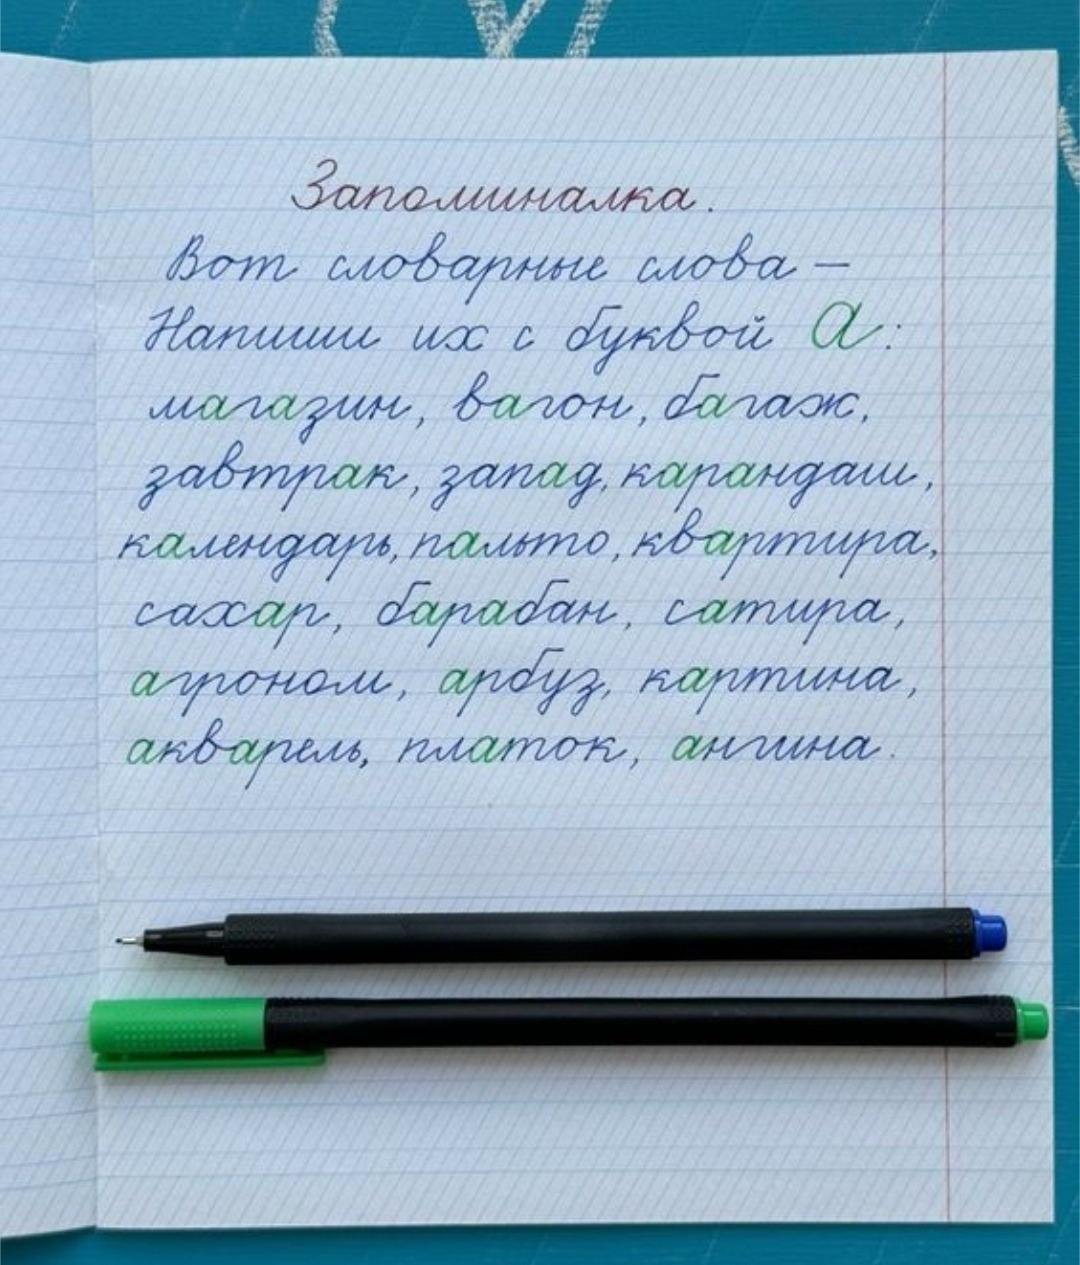 Запоминалка.
Вот словарные слова –
Напиши их с буквой А:
магазин, вагон, багаж,
завтрак, запад, карандаш,
календарь, пальто, квартира,
сахар, барабан, сатира,
агроном, арбуз, картина,
акварель, платок, ангина.